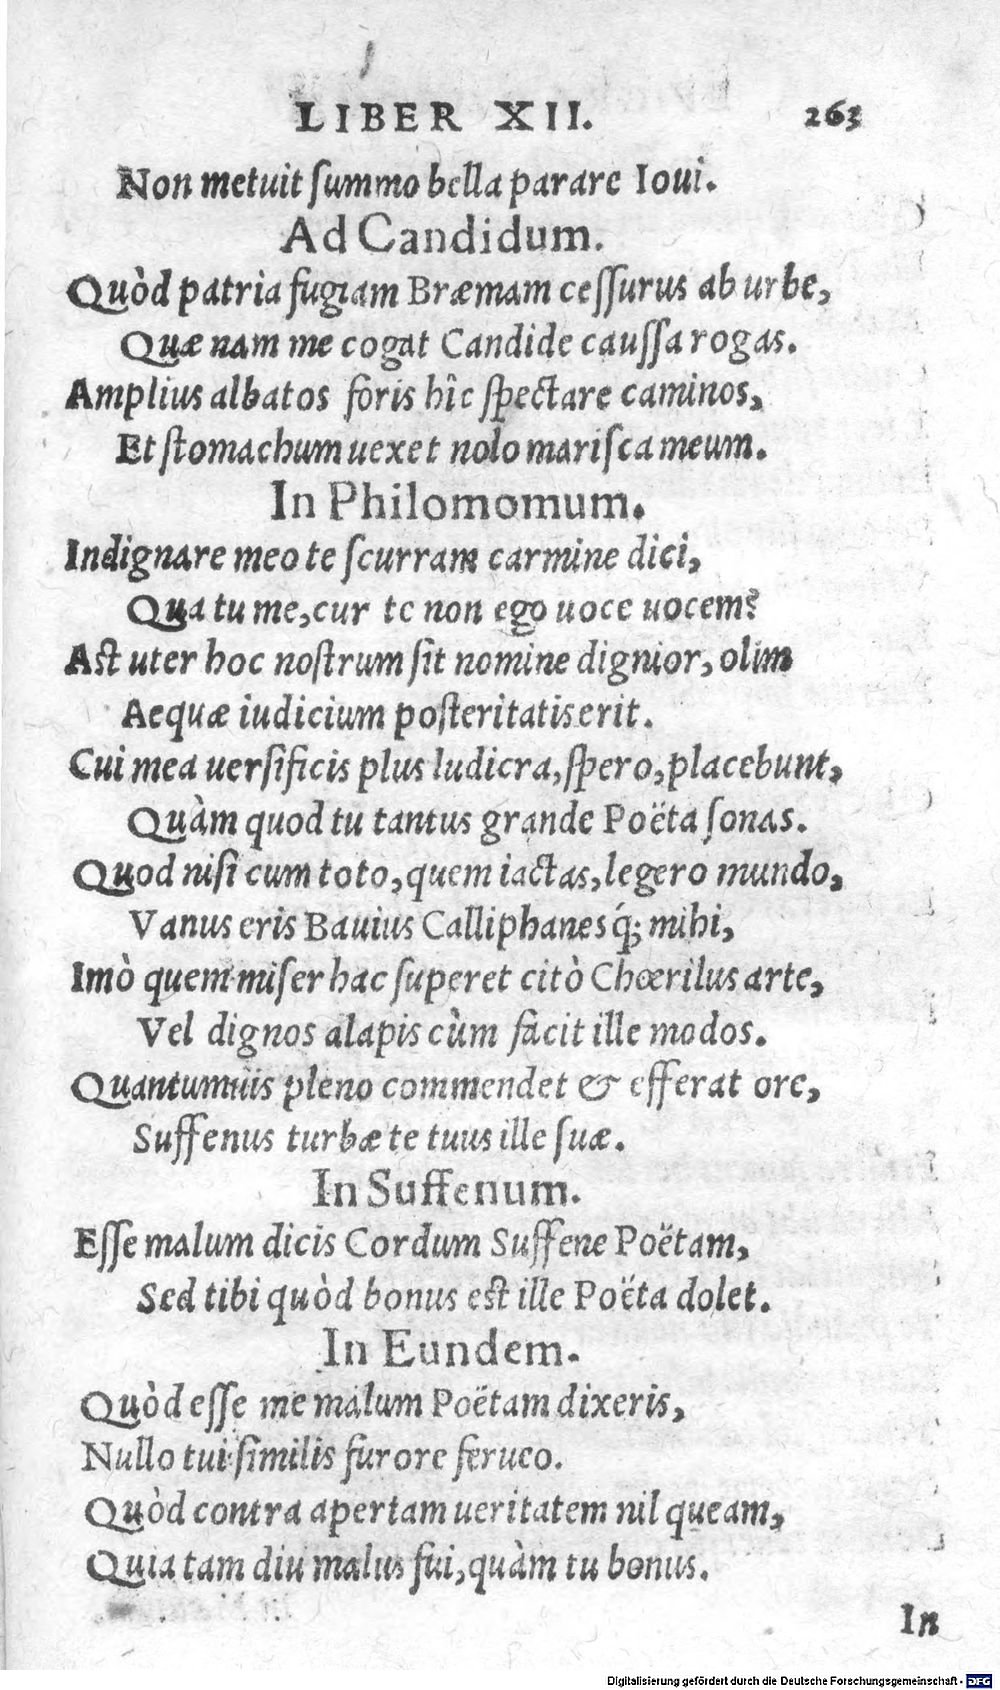 LIBER XII. 263
Non metuit ſummo bella parare Ioui.
Ad Candidum.
Quòd patria fugiam Bræmam ceſſurus ab urbe,
Quæ nam me cogat Candide cauſſa rogas.
Amplius albatos foris hîc ſpectare caminos,
Et ſtomachum uexet nolo mariſca meum.
In Philomomum.
Indignare meo te ſcurram carmine dici,
Qua tu me, cur te non ego uoce uocem?
Aſt uter hoc noſtrum ſit nomine dignior, olim
Aequæ iudicium poſteritatis erit.
Cui mea uerſificis plus ludicra, ſpero, placebunt,
Quàm quod tu tantus grande Poëta ſonas.
Quod niſi cum toto, quem iactas, legero mundo,
Vanus eris Bauius Calliphanesq́; mihi,
Imò quem miſer hac ſuperet citò Chœrilus arte,
Vel dignos alapis cùm facit ille modos.
Quantumuis pleno commendet & efferat ore,
Suffenus turbæ te tuus ille ſuæ.
In Suffenum.
Eſſe malum dicis Cordum Suffene Poëtam,
Sed tibi quòd bonus eſt ille Poëta dolet.
In Eundem.
Quòd eſſe me malum Poëtam dixeris,
Nullo tui ſimilis furore ferueo.
Quòd contra apertam ueritatem nil queam,
Quia tam diu malus fui, quàm tu bonus.
In
Digitalisierung gefördert durch die Deutsche Forschungsgemeinschaft - DFG